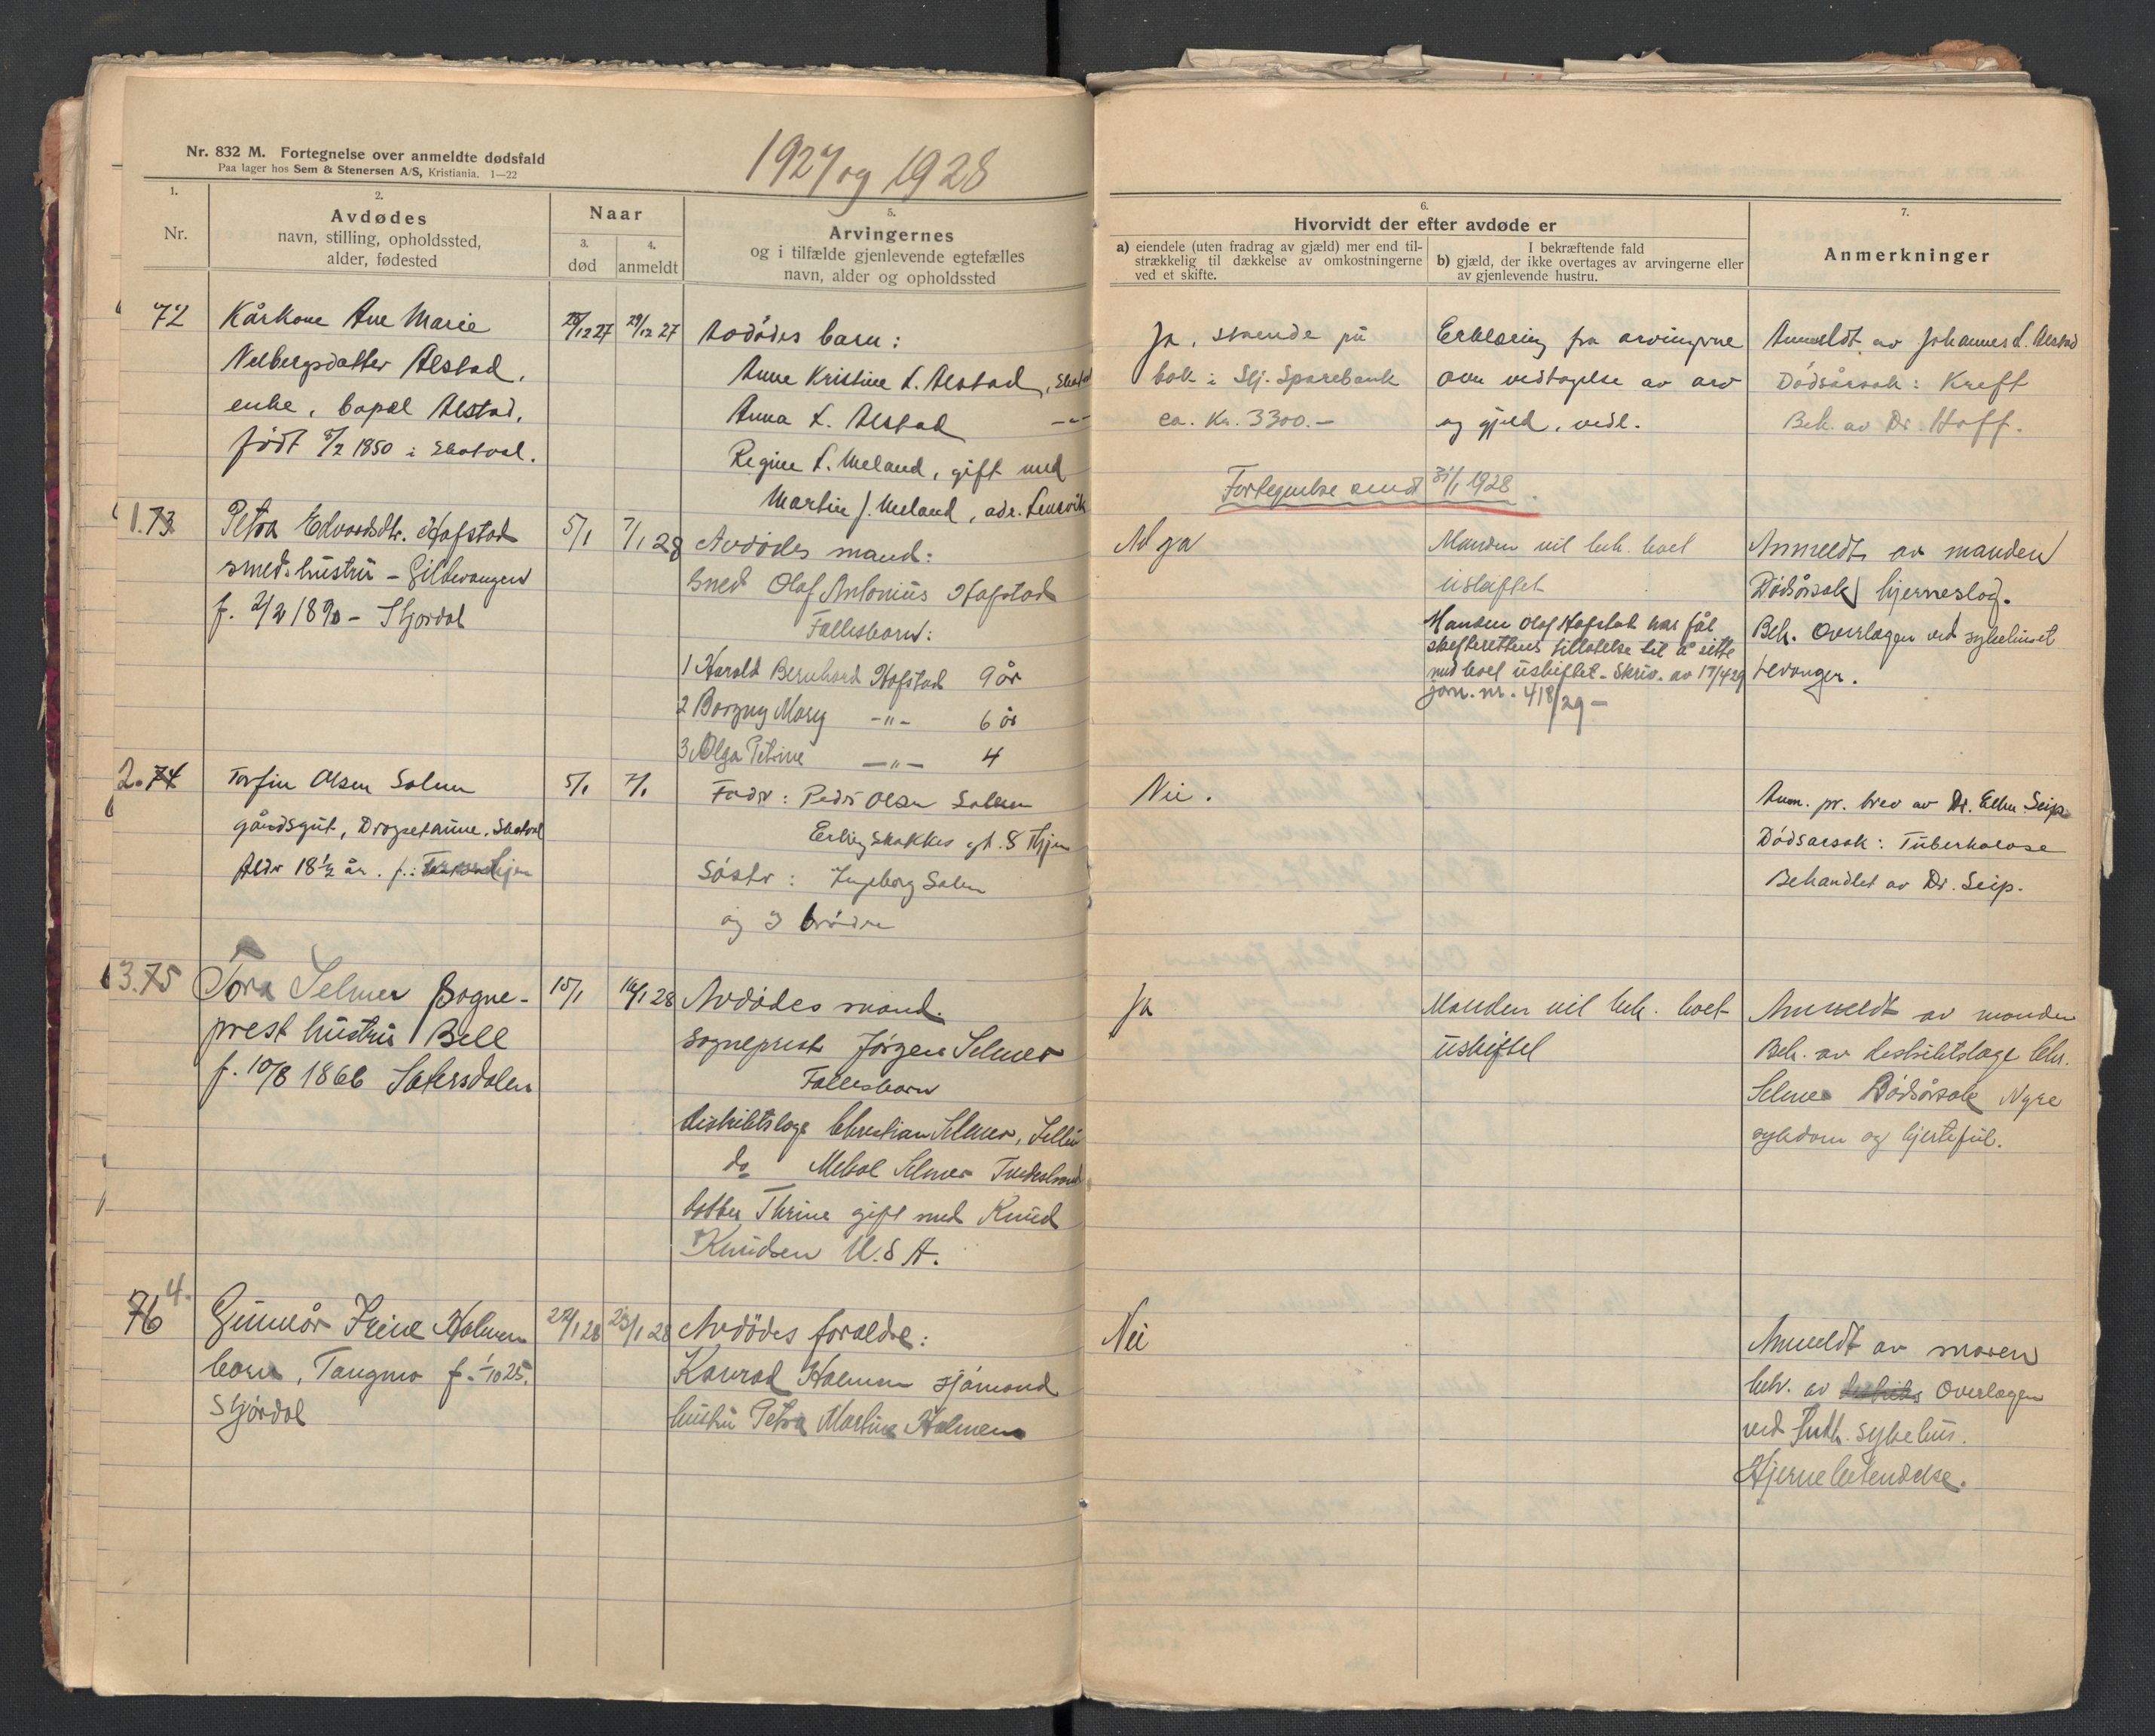 Nr. 832 M. Fortegnelse over anmeldte dødsfald
Paa lager hos Sem & Stenersen A/S, Kristiania. 1—22
1927 og 1928
1.
Nr.
2.
Avdødes
navn, stilling, opholdssted,
alder, fødested
Naar
3.
død
4.
anmeldt
5.
Arvingernes
og i tilfælde gjenlevende egtefælles
navn, alder og opholdssted
6.
Hvorvidt der efter avdøde er
a) eiendele (uten fradrag av gjæld) mer end til-
strækkelig til dækkelse av omkostningerne
ved et skifte.
I bekræftende fald
b) gjæld, der ikke overtages av arvingerne eller
av gjenlevende hustru.
7.
Anmerkninger
72
Kårkone Ane Marie
Alstad,
enke, Alstad,
født 5/2 1850 i Skatval.
28/12 27
29/12 27
Avdødes barn:
Anne Kristine L. Alstad,
Anna L. Alstad -"-
Regine L. Meland, gift med
Martin J. Meland, adr. Lensvik
Ja, staende på
bok i Stj. Sparebank
ca. Kr. 3300.-
Erklæring fra arvingerne
om vedtagelse av arv
og gjeld, vedl.
Anmeldt av Johannes L. Alstad
Dødsårsak: Kreft
Beh. av Dr. Hoff.
Fortegnelse sendt 31/1 1928.
1. 73
Petra Edvardsdtr. Hafstad
smed.hustru -
f. 2/2 1890 - Stjørdal
5/1
7/1 28
Avdødes mand:
Smed Olaf Antonius Hafstad
Fællesbarn:
1 Harald Bernhard Hafstad 9 år
2 Borgny Mary -"- 6 år
3 Olga Petrine -"- 4
ja
Manden vil beh. boet
uskiftet
Manden Olaf Hafstad har fåt
skifterettens tillatelse til å sitte
med boet uskiftet. Skriv. av 17/4 29
jorn. nr. 418/29 -
Anmeldt av manden
Dødsårsak hjerneslag.
Beh. Overlægen ved sykehuset
Levanger.
2. 74
Torfin Olsen Salen
gårdsgut, Skatval
Alder 18 1/2 år. f.:
5/1
7/1
Fader: Peder Olsen Salen
Erling Skakkes gt. 8 Thjem
Søster: Ingeborg Salen
og 3 brødre
Nei.
Anm. pr. brev av Dr. Seip
Dødsarsak: Tuberkulose
Behandlet av Dr. Seip.
3. 75
Tora Selmer Sogne-
prest hustru Bell
f. 10/8 1866 Sætersdalen
15/1
16/1 28
Avdødes mand.
Sogneprest Jørgen Selmer
Fællesbarn
distriktslæge Christian Selmer,
do Selmer Tvedestrand
datter Thrine gift med Knud
Knudsen U.S.A.
Ja
Manden vil beh. boet
uskiftet
Anmeldt av manden
Beh. av distriktslæge Chr.
Selmer Dødsårsak Nyre
sykdom og hjertefeil.
76 4.
Gunvor Irene Holmen
barn, Tangmo f. 1/10 25.
Stjørdal
22/1 28
23/1 28
Avdødes foreldre:
Konrad Holmen sjømand
hustru Petra Martine Holmen
Nei
Anmeldt av moren
beh. av Overlægen
ved Innh. sykehus.
Hjernebetendelse.